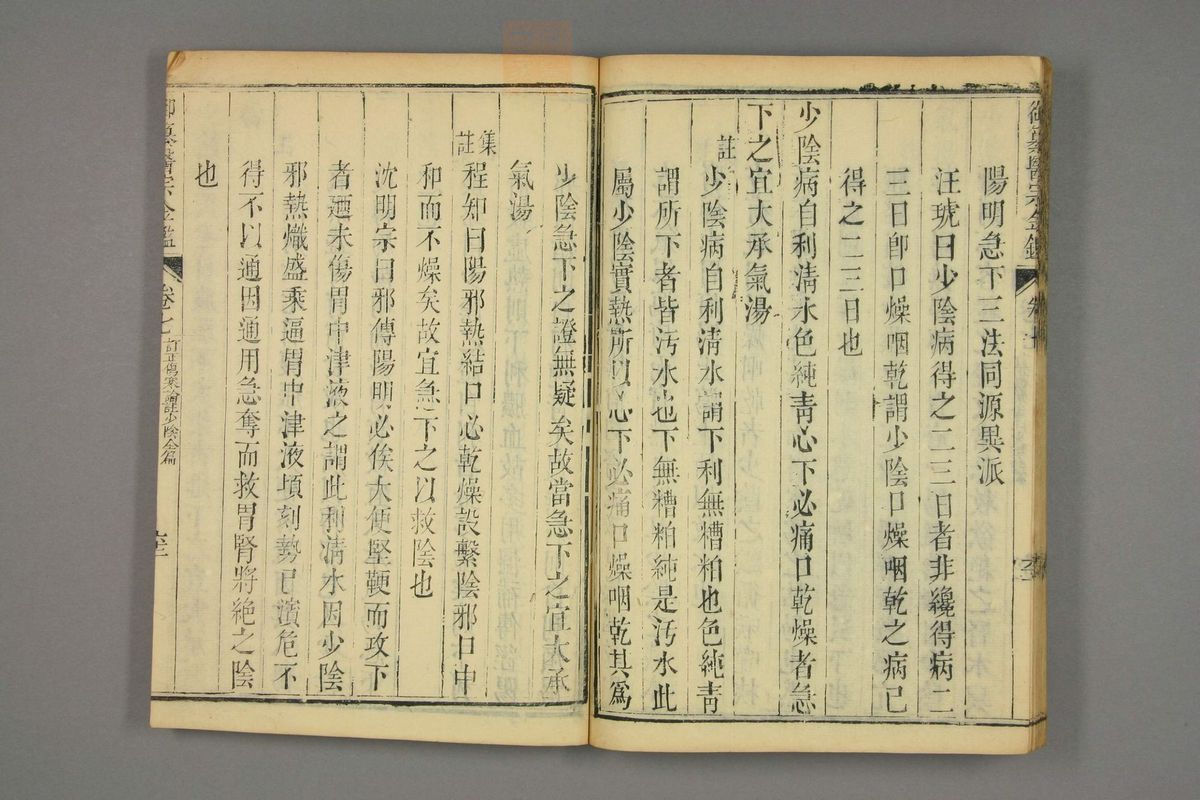 陽明急下三法同源異派
汪琥曰少陰病得之二三日者非纔得病二
三日卽口燥咽乾謂少陰口燥咽乾之病已
得之二三日也
少陰病自利淸水色純靑心下必痛口乾燥者急
下之宜大承氣湯
註
少陰病自利淸水謂下利無糟粕也色純靑
謂所下者皆汚水也下無糟粕純是汚水此
屬少陰實熱所以心下必痛口燥咽乾其爲
少陰急下之證無疑矣故當急下之宜大承
氣湯
集註
程知曰陽邪熱結口必乾燥設繫陰邪口中
和而不燥矣故宜急下之以救陰也
沈明宗曰邪傳陽明必俟大便堅鞕而攻下
者廼未傷胃中津液之謂此利淸水因少陰
邪熱熾盛乘逼胃中津液頃刻勢已濱危不
得不以通因通用急奪而救胃腎將絕之陰
也
御纂醫宗金鑑
卷七
訂正傷寒論註少陰全篇